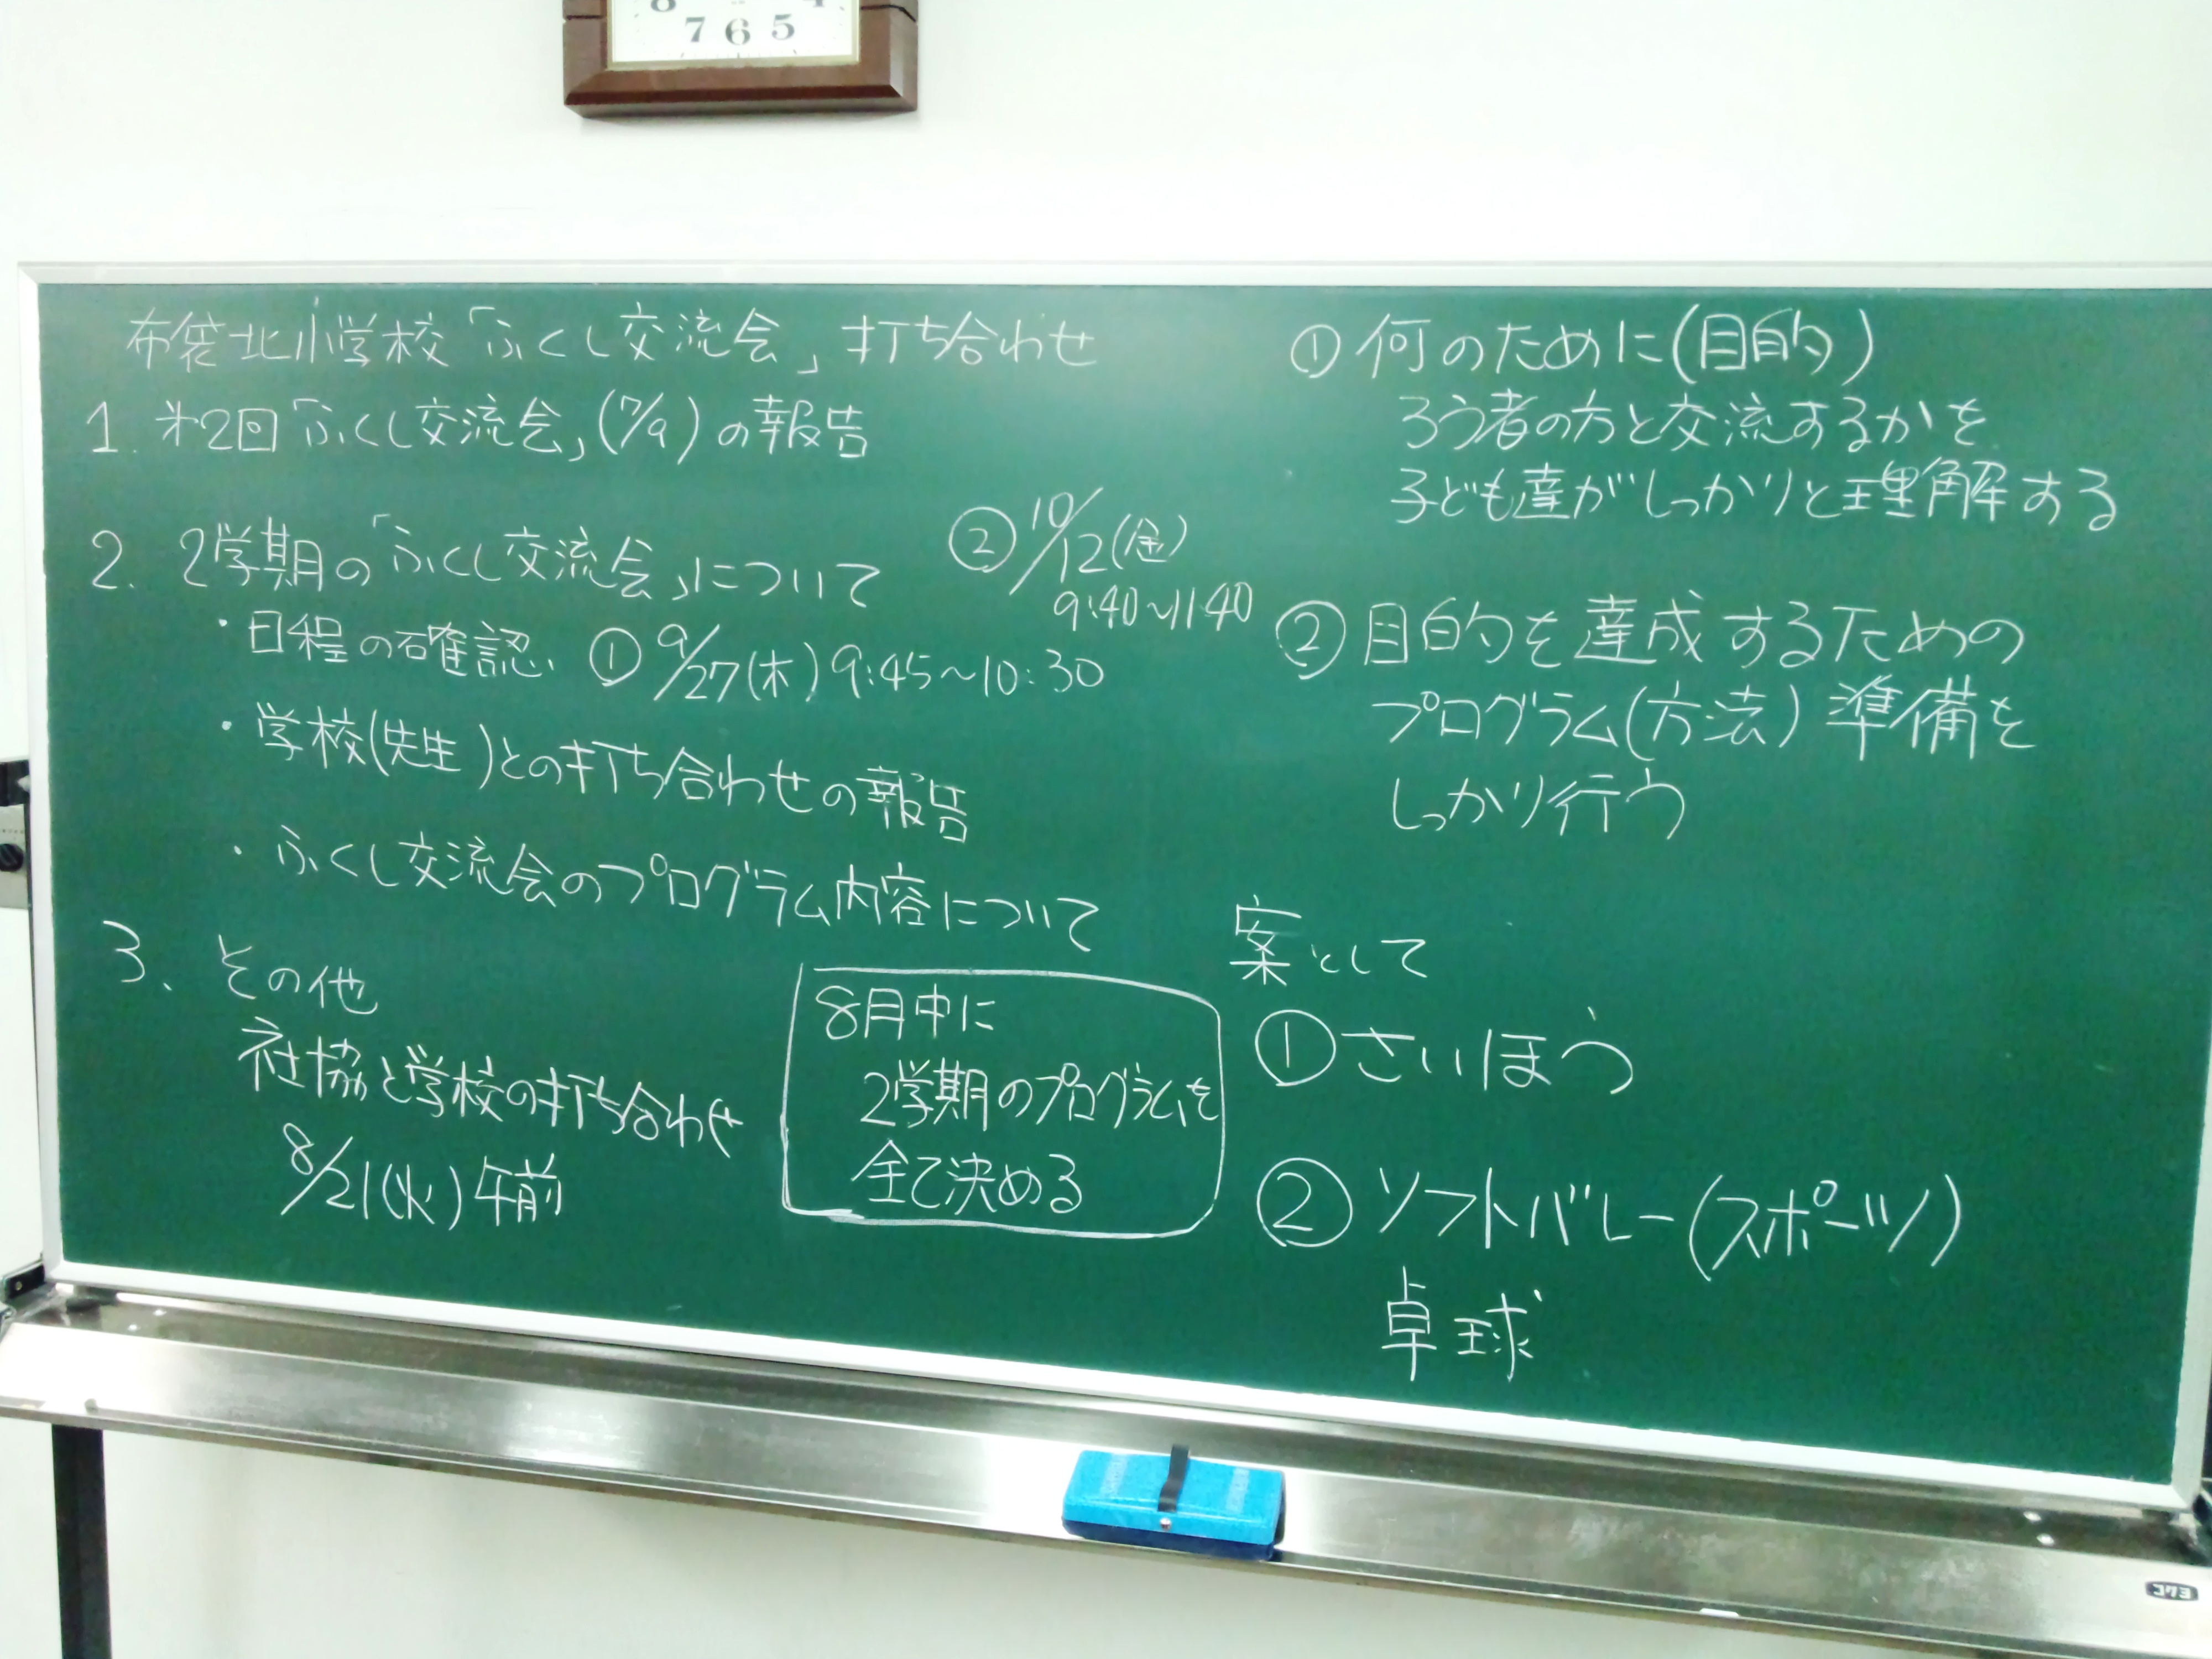 8 7 6 5 4
布袋北小学校「ふくし交流会」打ち合わせ
1. 㐧2回「ふくし交流会」(7/9)の報告
2. 2学期の「ふくし交流会」について
・日程の確認 ① 9/27(木) 9:45~10:30
② 10/12(金)
9:40~11:40
・学校(先生)との打ち合わせの報告
・ふくし交流会のプログラム内容について
3. その他
社協と学校の打ち合わせ
8/21(火)午前
8月中に
2学期のプログラムを
全て決める
①何のために(目的)
ろう者の方と交流するかを
子ども達がしっかりと理解する
②目的を達成するための
プログラム(方法)準備を
しっかり行う
案として
①さいほう
②ソフトバレー(スポーツ)
卓球
コクヨ